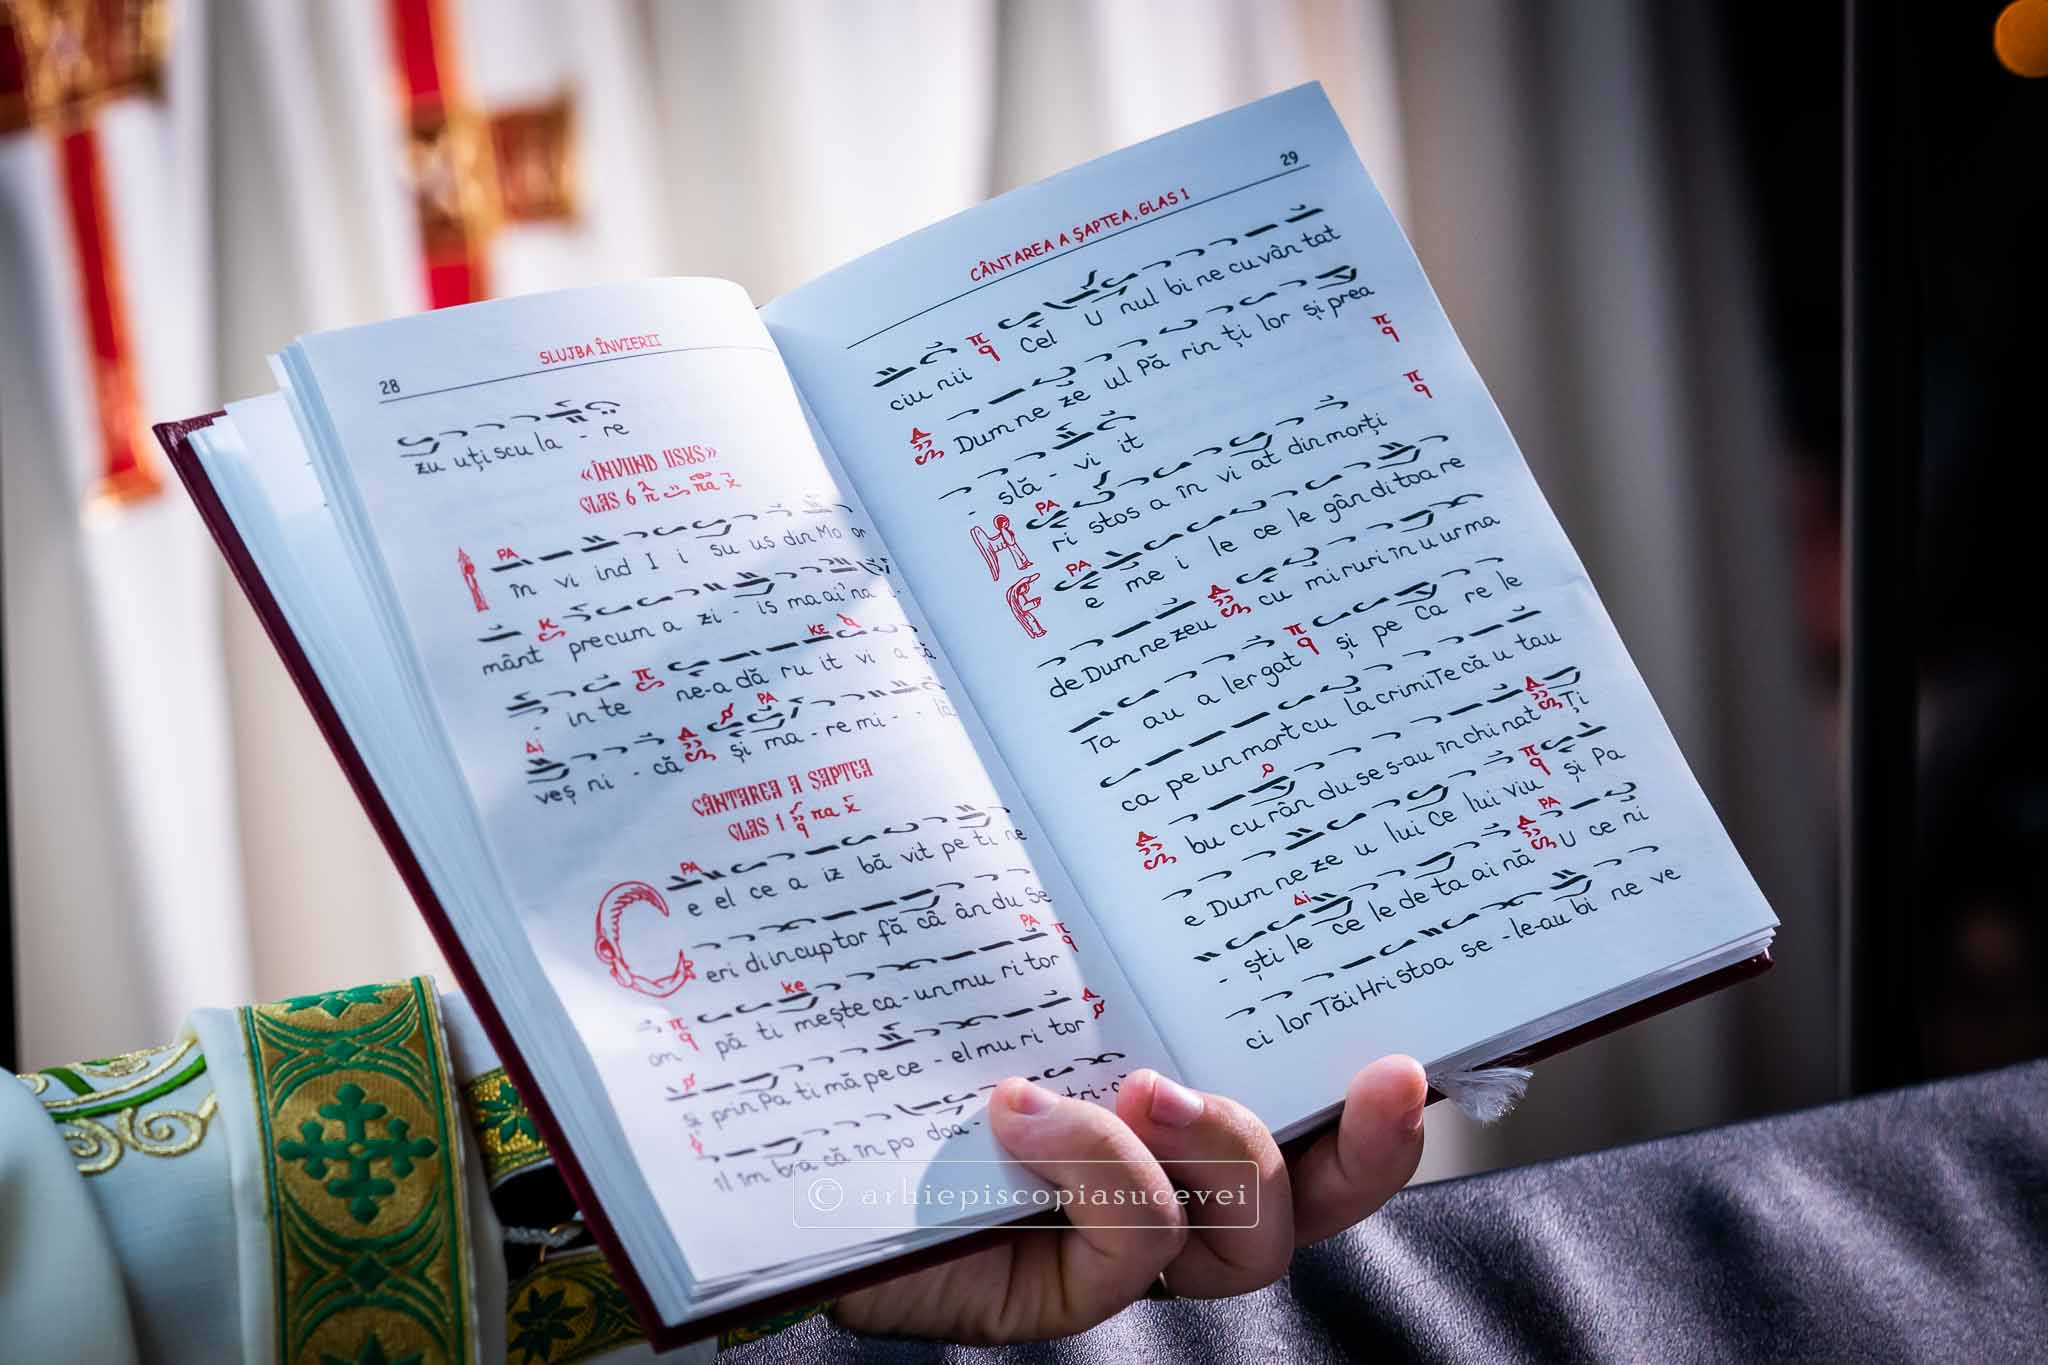 28
SLUJBA ÎNVIERII
zu uți scu la - re
«ÎNVIIND IISUS»
GLAS 6 πα
PA
în vi ind I i su us din Mo or
mânt precum a zi - is mai 'na i-
KE
- in te ne-a dă ru it vi a ță
PA
Δi
veș ni - că și ma - re mi - - lă
CÂNTAREA A ȘAPTEA
GLAS 1 πα
PA
C e el ce a iz bă vit pe ti ne
eri din cuptor fă câ ân du Se
PA
om pă ti mește ca - un mu ri tor
ke
și prin Pa ti mă pe ce - el mu ri tor
îl îm bra că în po doa-
29
CÂNTAREA A ȘAPTEA, GLAS 1
ciu nii Cel U nul bi ne cu vân tat
Dum ne ze ul Pă rin ți lor și prea
- slă - vi it
PA
H ri stos a în vi at din morți
PA
F e me i le ce le gân di toa re
de Dum ne zeu cu mi ruri în u ur ma
Ta au a ler gat și pe Ca re le
ca pe un mort cu la crimi Te că u tau
bu cu rân du se s-au în chi nat Ți
e Dum ne ze u lui Ce lui viu și Pa
PA
Δi
- ști le ce le de ta ai nă U ce ni
ci lor Tăi Hri stoa se - le-au bi ne ve
© arhiepiscopiasucevei